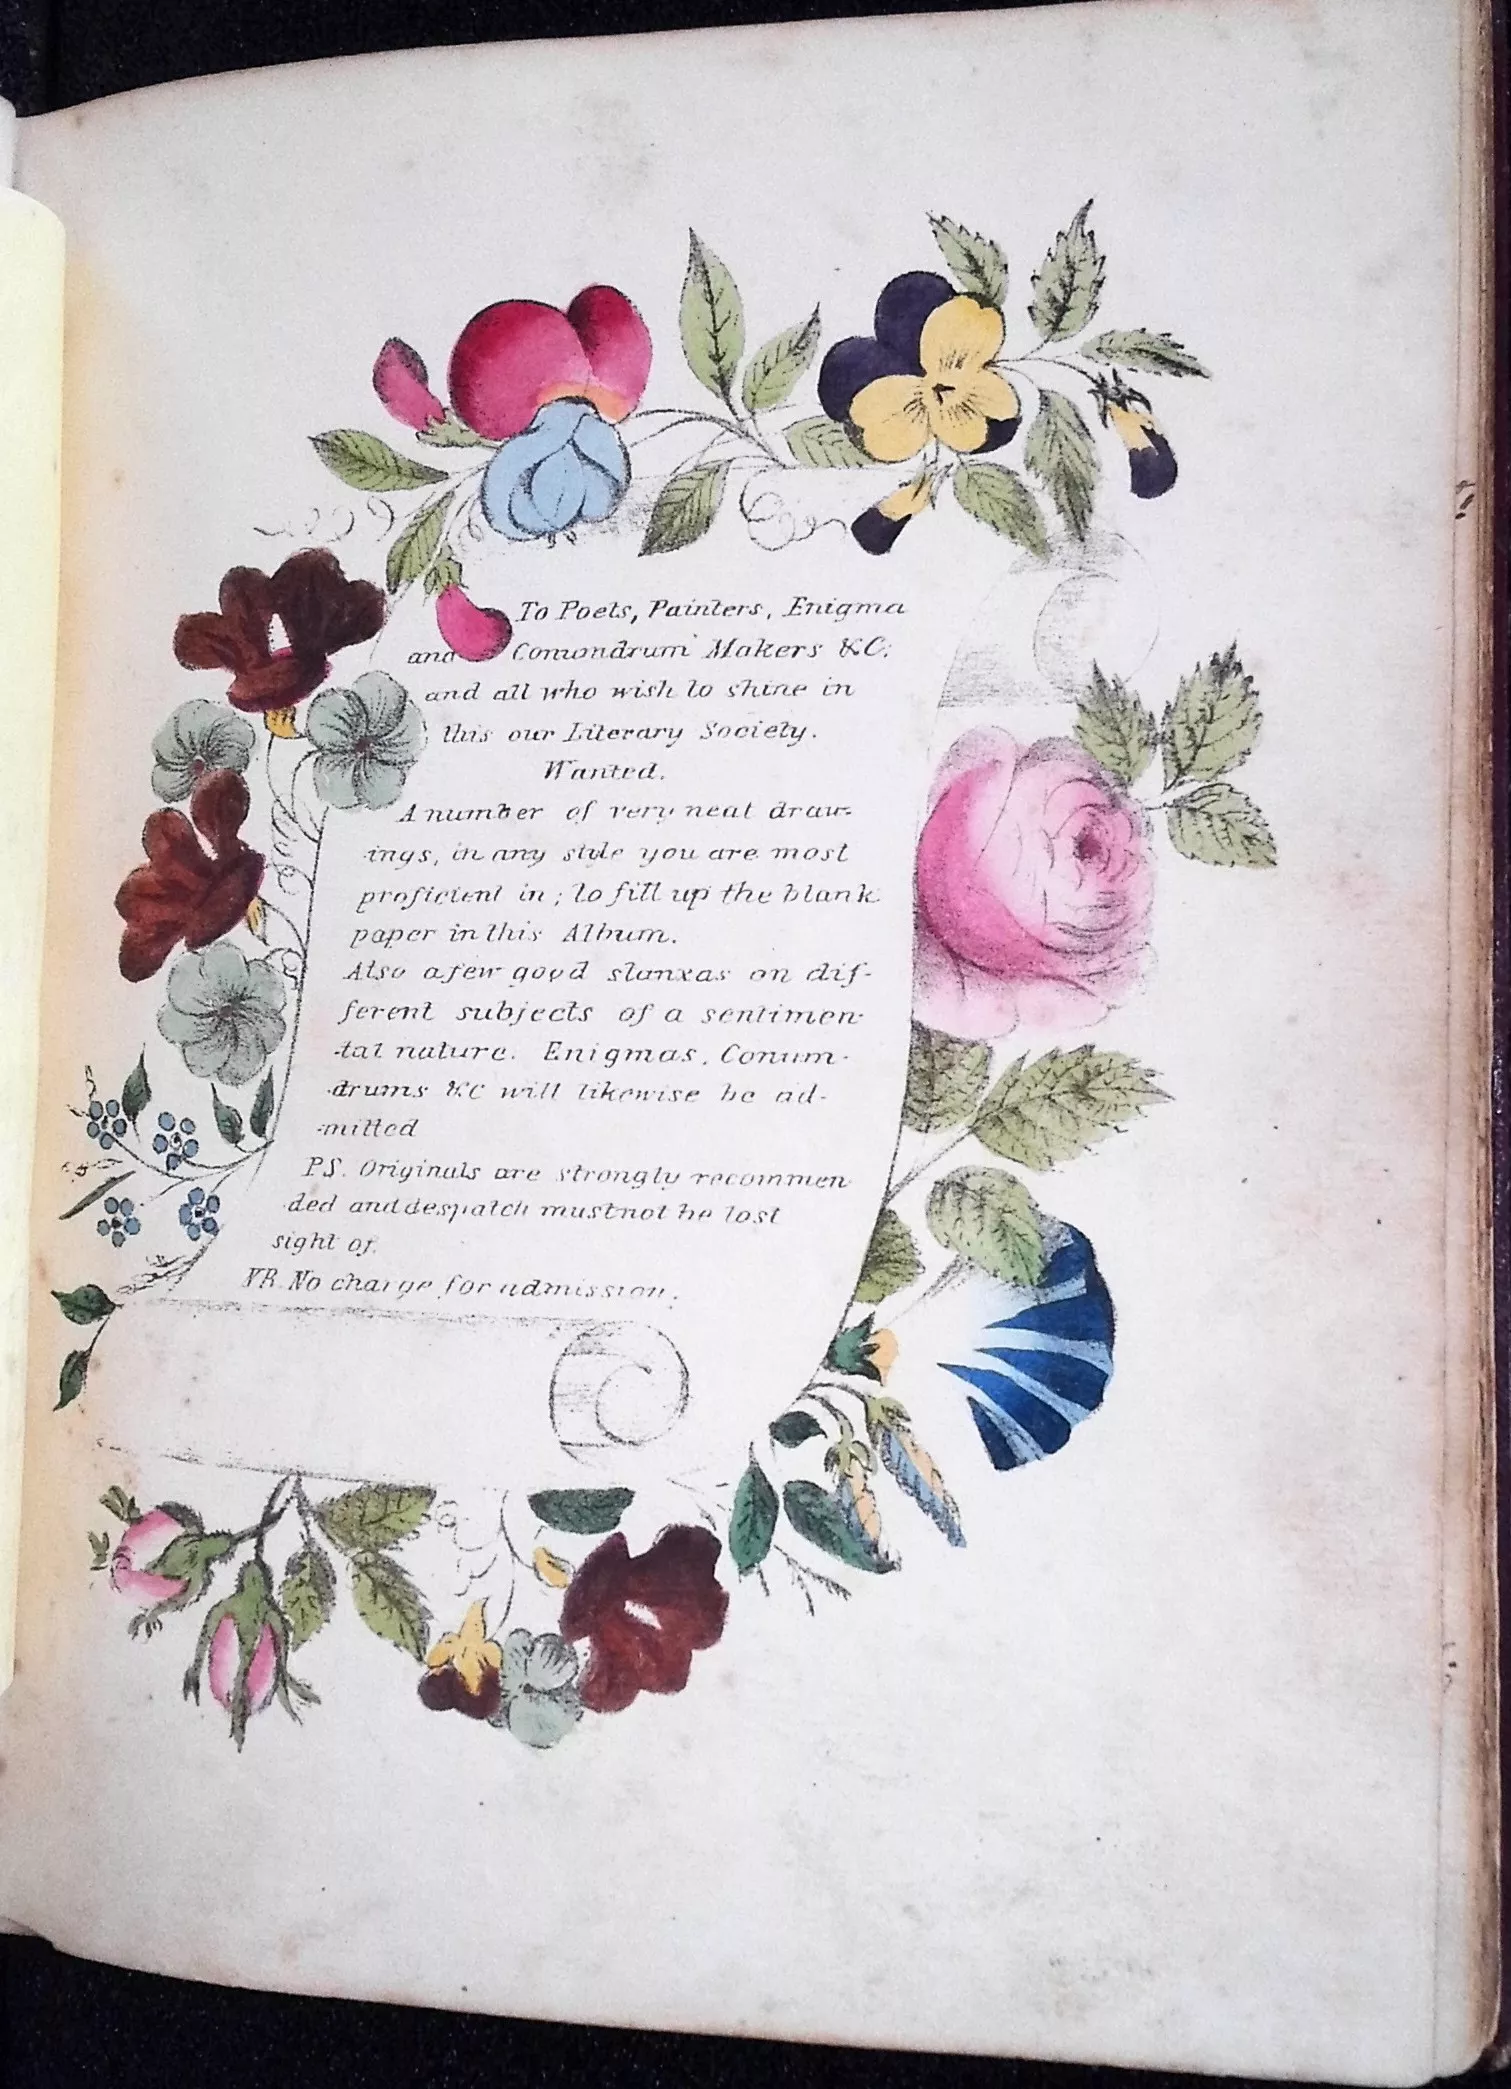 To Poets, Painters, Enigma
and Conundrum Makers &C;
and all who wish to shine in
this our Literary Society.
Wanted.
A number of very neat draw-
-ings, in any style you are most
proficient in; to fill up the blank
paper in this Album.
Also a few good stanzas on dif-
ferent subjects of a sentimen-
-tal nature. Enigmas, Conun-
-drums &C will likewise be ad-
-mitted
PS. Originals are strongly recommen
ded and despatch must not be lost
sight of.
NB. No charge for admission.